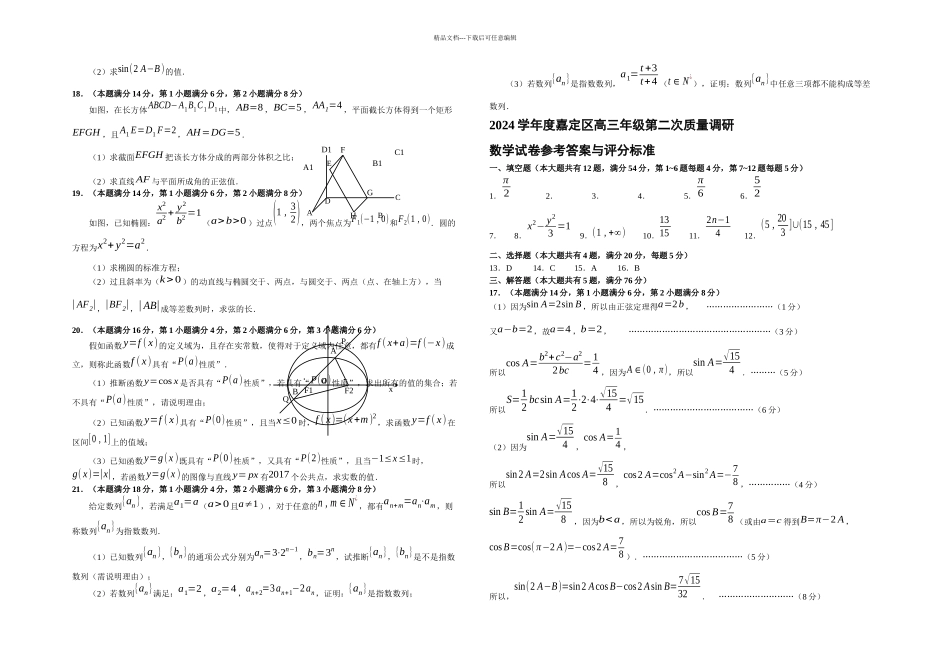 精品文档---下载后可任意编辑
（2）求sin(2A−B)的值.
18.（本题满分14分，第1小题满分6分，第2小题满分8分）
如图，在长方体ABCD−A₁B₁C₁D₁中，AB=8，BC=5，AA₁=4，平面截长方体得到一个矩形
EFGH，且A₁E=D₁F=2，AH=DG=5.
（1）求截面EFGH把该长方体分成的两部分体积之比；
（2）求直线AF与平面所成角的正弦值.
D1 F C1
A1 E B1
D G C
A H B
19.（本题满分14分，第1小题满分6分，第2小题满分8分）
如图，已知椭圆：x²/a²+y²/b²=1（a>b>0）过点(1, 3/2)，两个焦点为F₁(−1,0)和F₂(1,0).圆的
方程为x²+y²=a².
（1）求椭圆的标准方程；
（2）过且斜率为（k>0）的动直线与椭圆交于、两点，与圆交于、两点（点、在轴上方），当
|AF₂|，|BF₂|，|AB|成等差数列时，求弦的长.
20.（本题满分16分，第1小题满分4分，第2小题满分6分，第3小题满分6分）
假如函数y=f(x)的定义域为，且存在实常数，使得对于定义域内任意，都有f(x+a)=f(−x)成
立，则称此函数f(x)具有“P(a)性质”.
（1）推断函数y=cos x是否具有“P(a)性质”，若具有“P(a)性质”，求出所有的值的集合；若
不具有“P(a)性质”，请说明理由；
（2）已知函数y=f(x)具有“P(0)性质”，且当x≤0时，f(x)=(x+m)²，求函数y=f(x)在
区间[0,1]上的值域；
（3）已知函数y=g(x)既具有“P(0)性质”，又具有“P(2)性质”，且当−1≤x≤1时，
g(x)=|x|，若函数y=g(x)的图像与直线y=px有2017个公共点，求实数的值.
P
A
B F1 O F2 x
Q
21.（本题满分18分，第1小题满分4分，第2小题满分6分，第3小题满分8分）
给定数列{aₙ}，若满足a₁=a（a>0且a≠1），对于任意的n,m∈N*，都有aₙ₊ₘ=aₙ·aₘ，则
称数列{aₙ}为指数数列.
（1）已知数列{aₙ}，{bₙ}的通项公式分别为aₙ=3·2ⁿ⁻¹，bₙ=3ⁿ，试推断{aₙ}，{bₙ}是不是指数
数列（需说明理由）；
（2）若数列{aₙ}满足：a₁=2，a₂=4，aₙ₊₂=3aₙ₊₁−2aₙ，证明：{aₙ}是指数数列；
（3）若数列{aₙ}是指数数列，a₁=(t+3)/(t+4)（t∈N*），证明：数列{aₙ}中任意三项都不能构成等差
数列.
2024学年度嘉定区高三年级第二次质量调研
数学试卷参考答案与评分标准
一、填空题（本大题共有12题，满分54分，第1~6题每题4分，第7~12题每题5分）
1. π/2 2. 3. 4. 5. π/6 6. 5/2
7. 8. x²−y²/3=1 9. (1,+∞) 10. 13/15 11. (2n−1)/4 12. (5, 20/3]∪(15,45]
二、选择题（本大题共有4题，满分20分，每题5分）
13．D 14．C 15．A 16．B
三、解答题（本大题共有5题，满分76分）
17.（本题满分14分，第1小题满分6分，第2小题满分8分）
（1）因为sin A=2sin B，所以由正弦定理得a=2b， ……………………（1分）
又a−b=2，故a=4，b=2， ……………………………………………（3分）
所以cos A=(b²+c²−a²)/2bc=1/4，因为A∈(0,π)，所以sin A=√15/4. ………（5分）
所以S=1/2 bc sin A=1/2·2·4·√15/4=√15. ………………………………（6分）
（2）因为sin A=√15/4，cos A=1/4，
所以sin 2A=2sin A cos A=√15/8，cos 2A=cos²A−sin²A=−7/8，……………（4分）
sin B=1/2 sin A=√15/8，因为b<a，所以为锐角，所以cos B=7/8（或由a=c得到B=π−2A，
cos B=cos(π−2A)=−cos 2A=7/8）. ………………………………（5分）
所以，sin(2A−B)=sin 2A cos B−cos 2A sin B=7√15/32. ………………………（8分）